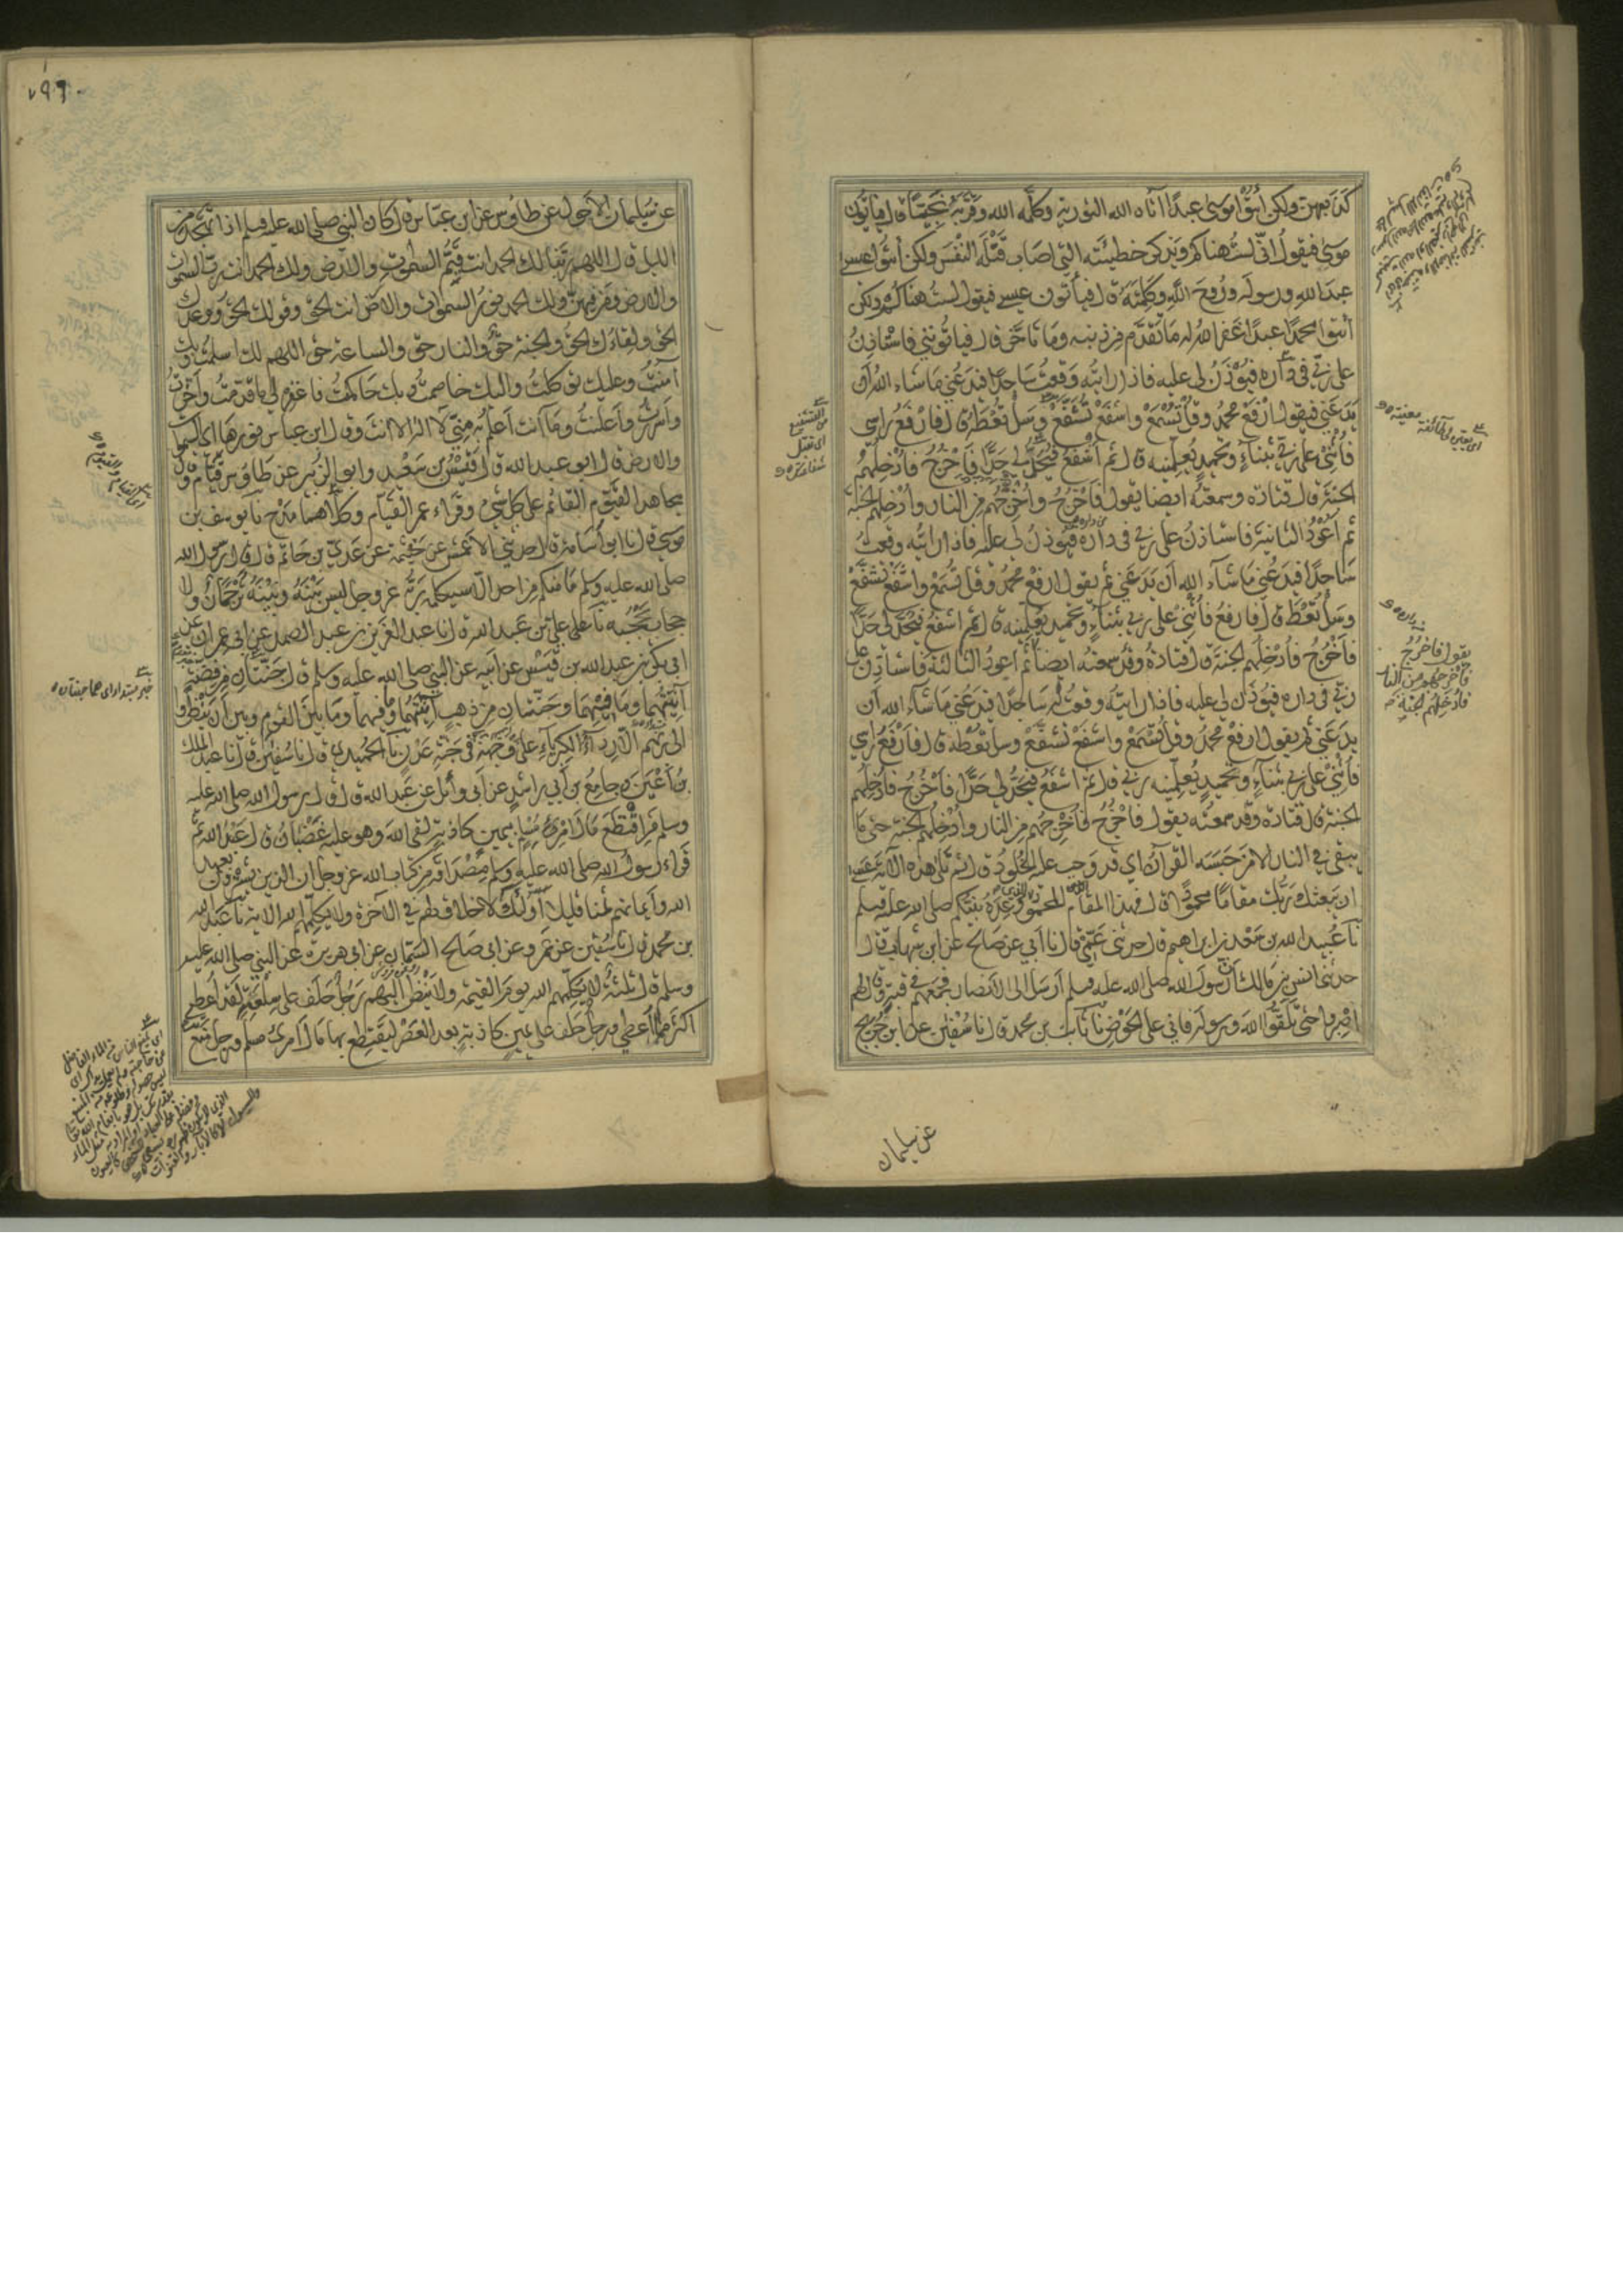 كذبهن ولكن ائتوا موسى عبدا آتاه الله التورية وكلمه الله وقربه نجيا قال فيأتون
موسى فيقول اني لست هناكم ويذكر خطيئته التي اصاب قتله النفس ولكن ائتوا عيسى
عبد الله ورسوله وروح الله وكلمته قال فيأتون عيسى فيقول لست هناكم ولكن
ائتوا محمدا عبدا غفر الله له ما تقدم من ذنبه وما تأخر قال فيأتوني فاستاذن
على ربي في داره فيؤذن لي عليه فاذا رايته وقعت ساجدا فيدعني ما شاء الله ان
يدعني فيقول ارفع محمد وقل تسمع واشفع تشفع وسل تعط قال فارفع راسي
فأثني على ربي بثناء وتحميد يعلمنيه قال ثم اشفع فيحد لي حدا فاخرج فادخلهم
الجنة قال قتادة وسمعته ايضا يقول فاخرج واخرجهم من النار وادخلهم الجنة
ثم اعود الثانية فاستاذن على ربي في داره فيؤذن لي عليه فاذا رايته وقعت
ساجدا فيدعني ما شاء الله ان يدعني ثم يقول ارفع محمد وقل تسمع واشفع تشفع
وسل تعط قال فارفع فأثني على ربي بثناء وتحميد يعلمنيه قال ثم اشفع فيحد لي حدا
فاخرج فادخلهم الجنة قال قتادة وقد سمعته ايضا ثم اعود الثالثة فاستاذن على
ربي في داره فيؤذن لي عليه فاذا رايته وقعت له ساجدا فيدعني ما شاء الله ان
يدعني ثم يقول ارفع محمد وقل تسمع واشفع تشفع وسل تعطه قال فارفع راسي
فأثني على ربي بثناء وتحميد يعلمنيه ربي قال ثم اشفع فيحد لي حدا فاخرج فادخلهم
الجنة قال قتادة وقد سمعته يقول فاخرج فاخرجهم من النار وادخلهم الجنة حتى ما
يبقى في النار الا من حبسه القرآن اي قد وجب عليه الخلود قال ثم تلا هذه الآية عسى
ان يبعثك ربك مقاما محمودا قال فهذا المقام المحمود الذي وعده نبيكم صلى الله عليه وسلم
نا عبيد الله بن سعد بن ابراهيم قال حدثني عمي قال نا ابي عن صالح عن ابن شهاب قال
حدثني انس بن مالك ان رسول الله صلى الله عليه وسلم ارسل الى الانصار فجمعهم في قبة وقال لهم
اصبروا حتى تلقوا الله ورسوله فاني على الحوض نا ثابت بن محمد قال نا سفين عن ابن جريج
يقول فاخرج
فاخرجهم من النار
فادخلهم الجنة
من التشفيع
اى تقبل
شفاعتك
عن سليمان
٧٩٦
عن سليمان الاحول عن طاوس عن ابن عباس قال كان النبي صلى الله عليه وسلم اذا تهجد من
الليل قال اللهم ربنا لك الحمد انت قيم السموات والارض ولك الحمد انت رب السموات
والارض ومن فيهن ولك الحمد نور السموات والارض انت الحق وقولك الحق ووعدك
الحق ولقاءك الحق والجنة حق والنار حق والساعة حق اللهم لك اسلمت وبك
آمنت وعليك توكلت واليك خاصمت وبك حاكمت فاغفر لي ما قدمت واخرت
واسررت واعلنت وما انت اعلم به مني لا اله الا انت وقال ابن عباس نور هادي السموات
والارض قال ابو عبد الله قال قيس بن سعد وابو الزبير عن طاوس قيام وقال
مجاهد القيوم القائم على كل شيء وقراء عمر القيام وكلاهما مدح نا يوسف بن
موسى قال نا ابو اسامة قال حدثني الاعمش عن خيثمة عن عدي بن حاتم قال قال رسول الله
صلى الله عليه وسلم ما منكم من احد الا سيكلمه ربه عز وجل ليس بينه وبينه ترجمان ولا
حجاب يحجبه نا علي بن عبد الله قال نا عبد العزيز بن عبد الصمد عن ابي عمران عن
ابي بكر بن عبد الله بن قيس عن ابيه عن النبي صلى الله عليه وسلم قال جنتان من فضة
آنيتهما وما فيهما وجنتان من ذهب آنيتهما وما فيهما وما بين القوم وبين ان ينظروا
الى ربهم الا رداء الكبرياء على وجهه في جنة عدن نا الحميدي قال نا سفين قال نا عبد الملك
بن اعين وجامع بن ابي راشد عن ابي وائل عن عبد الله قال قال رسول الله صلى الله عليه
وسلم من اقتطع مال امرئ مسلم بيمين كاذبة لقي الله وهو عليه غضبان قال عبد الله ثم
قراء رسول الله صلى الله عليه وسلم مصداقه من كتاب الله عز وجل ان الذين يشترون بعهد
الله وايمانهم ثمنا قليلا اولئك لا خلاق لهم في الآخرة ولا يكلمهم الله الآية نا عبد الله
بن محمد قال نا سفين عن عمرو عن ابي صالح السمان عن ابي هريرة عن النبي صلى الله عليه
وسلم قال ثلثة لا يكلمهم الله يوم القيمة ولا ينظر اليهم رجل حلف على سلعة لقد اعطي
اكثر مما اعطي ورجل حلف على يمين كاذبة بعد العصر ليقتطع بها مال امرئ مسلم ورجل منع
خبر مبتدا اى هما جنتان